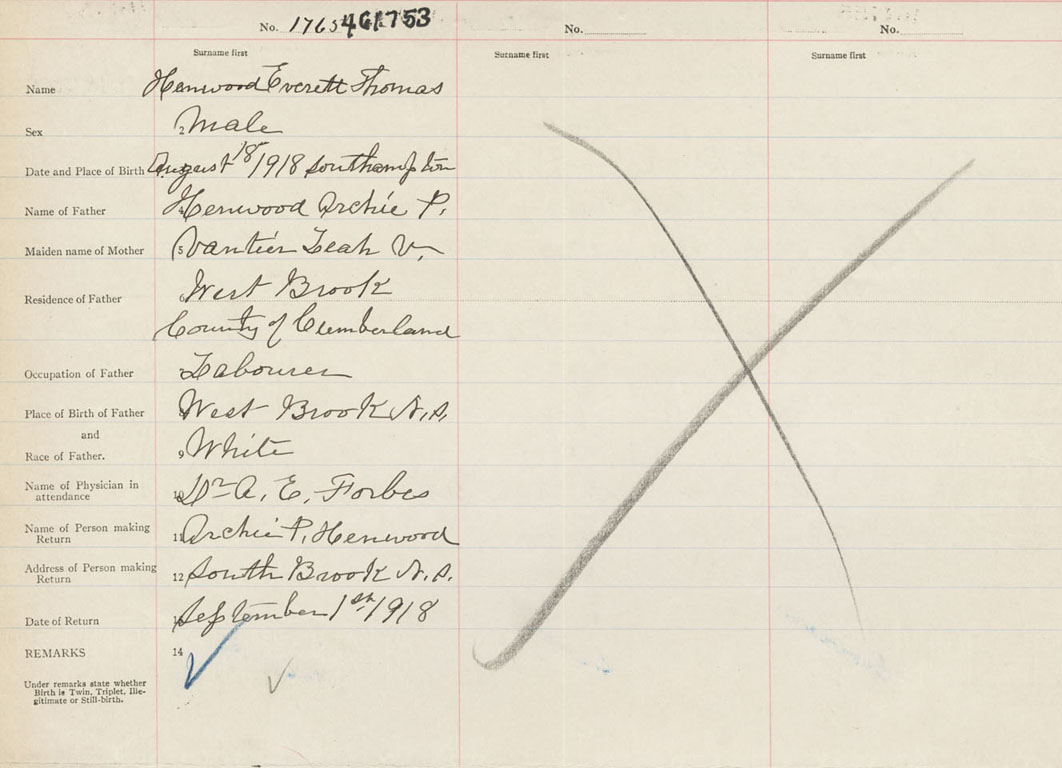 No. 1765 461753
No.
No.
Surname first
Surname first
Surname first
Name Henwood Everett Thomas
Sex 2 Male
Date and Place of Birth August 18th/1918 Southampton
Name of Father 4 Henwood Archie P.
Maiden name of Mother 5 Leah V.
Residence of Father 6 West Brook
County of Cumberland
Occupation of Father Labourer
Place of Birth of Father West Brook N.S.
and
Race of Father. 9 White
Name of Physician in
attendance 10 Dr A. E. Forbes
Name of Person making
Return 11 Archie P. Henwood
Address of Person making
Return 12 South Brook N.S.
Date of Return September 1st/1918
REMARKS 14
Under remarks state whether
Birth is Twin, Triplet, Ille-
gitimate or Still-birth.